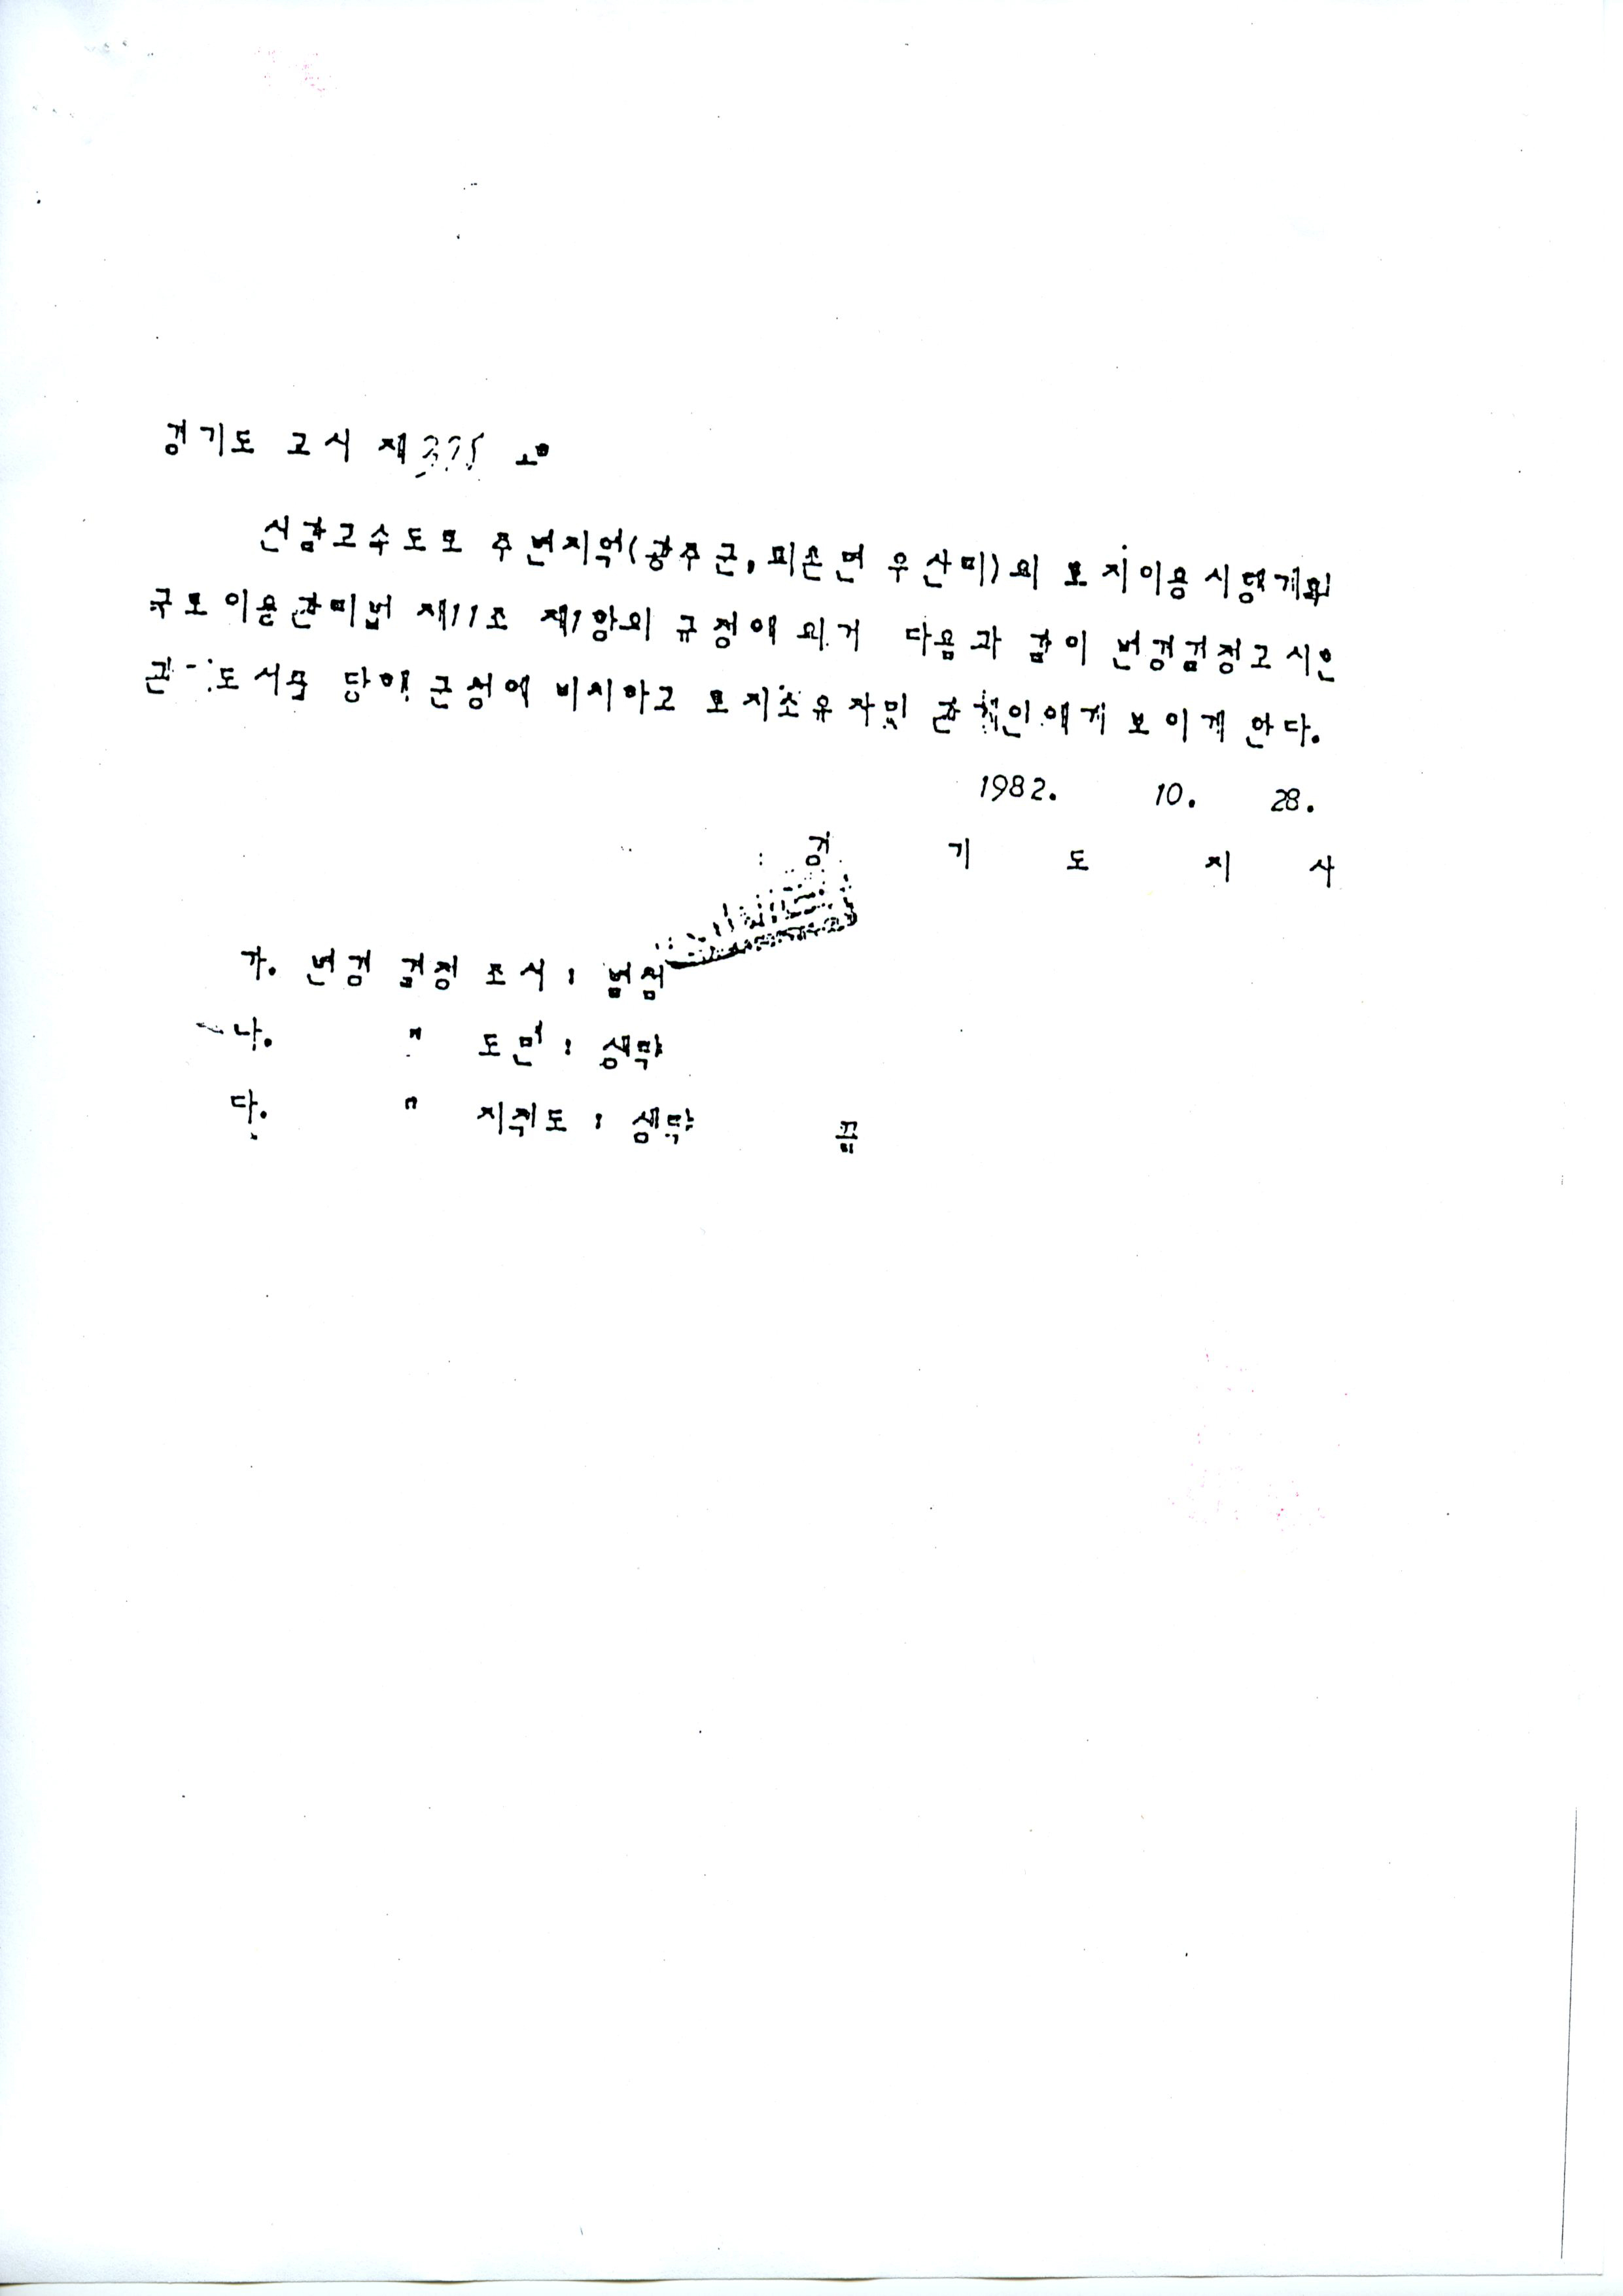 경기도 고시 제 호
신갈고속도로 주변지역(광주군, 퇴촌면 우산리)의 토지이용시행계획
국토이용관리법 제11조 제1항의 규정에 의거 다음과 같이 변경결정고시
도서를 당해 군청에 비치하고 토지소유자및 인에게 보이게 한다.
1982. 10. 28.
경 기 도 지 사
가. 변경 결정 조서 : 별첨
나. " 도면 : 생략
다. " 지적도 : 생략 끝